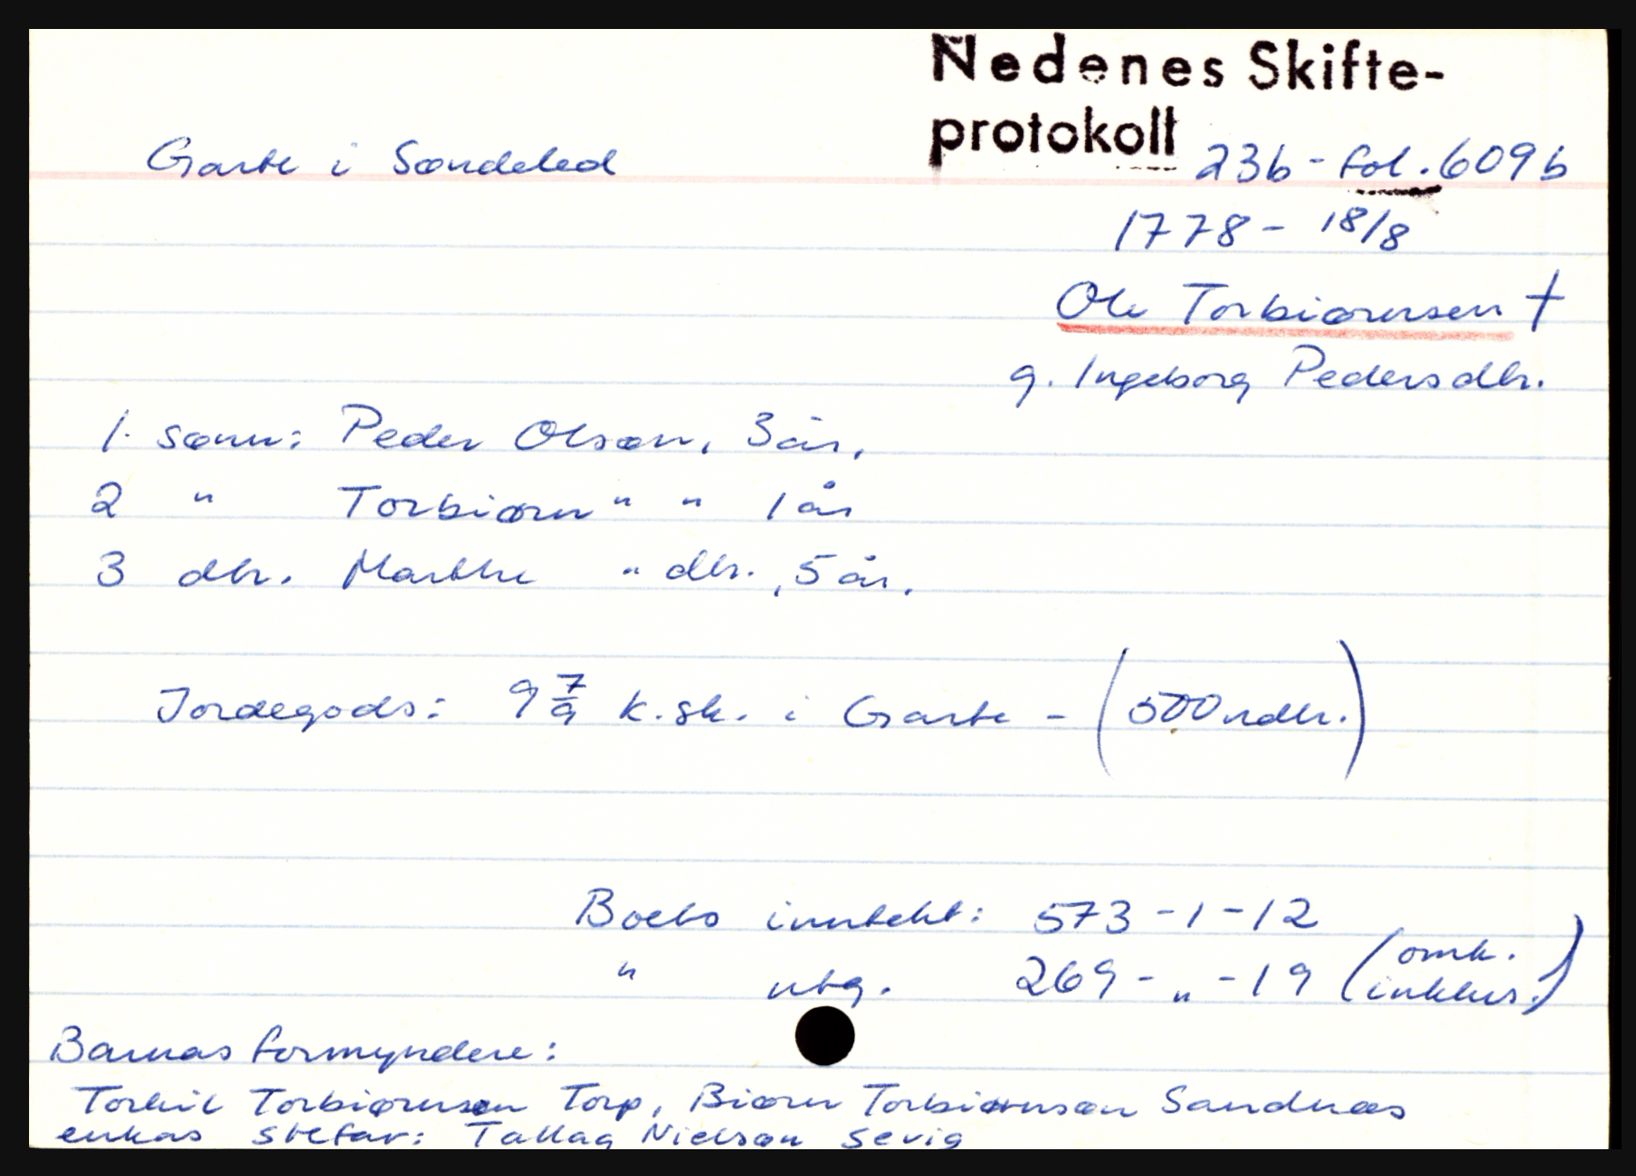 Nedenes Skifte-
protokoll 23b - fol. 609b
Garte i Søndeled
1778 - 18/8
Ole Torbiørnsen †
g. Ingeborg Pedersdtr.
1. sønn: Peder Olsøn, 3 år,
2 " Torbiørn " " 1 år
3 dtr. Marthe " dtr., 5 år,
Jordegods: 9 7/9 k.sk. i Garte - (500 rdlr.)
Boets inntekt: 573 - 1 - 12
" utg. 269 - " - 19 (omk. inklus.)
Barnas formyndere:
Torkil Torbiørnsøn Torp, Biørn Torbiørnsøn Sandnæs
enkas stefar: Tallag Nielsøn Sevig